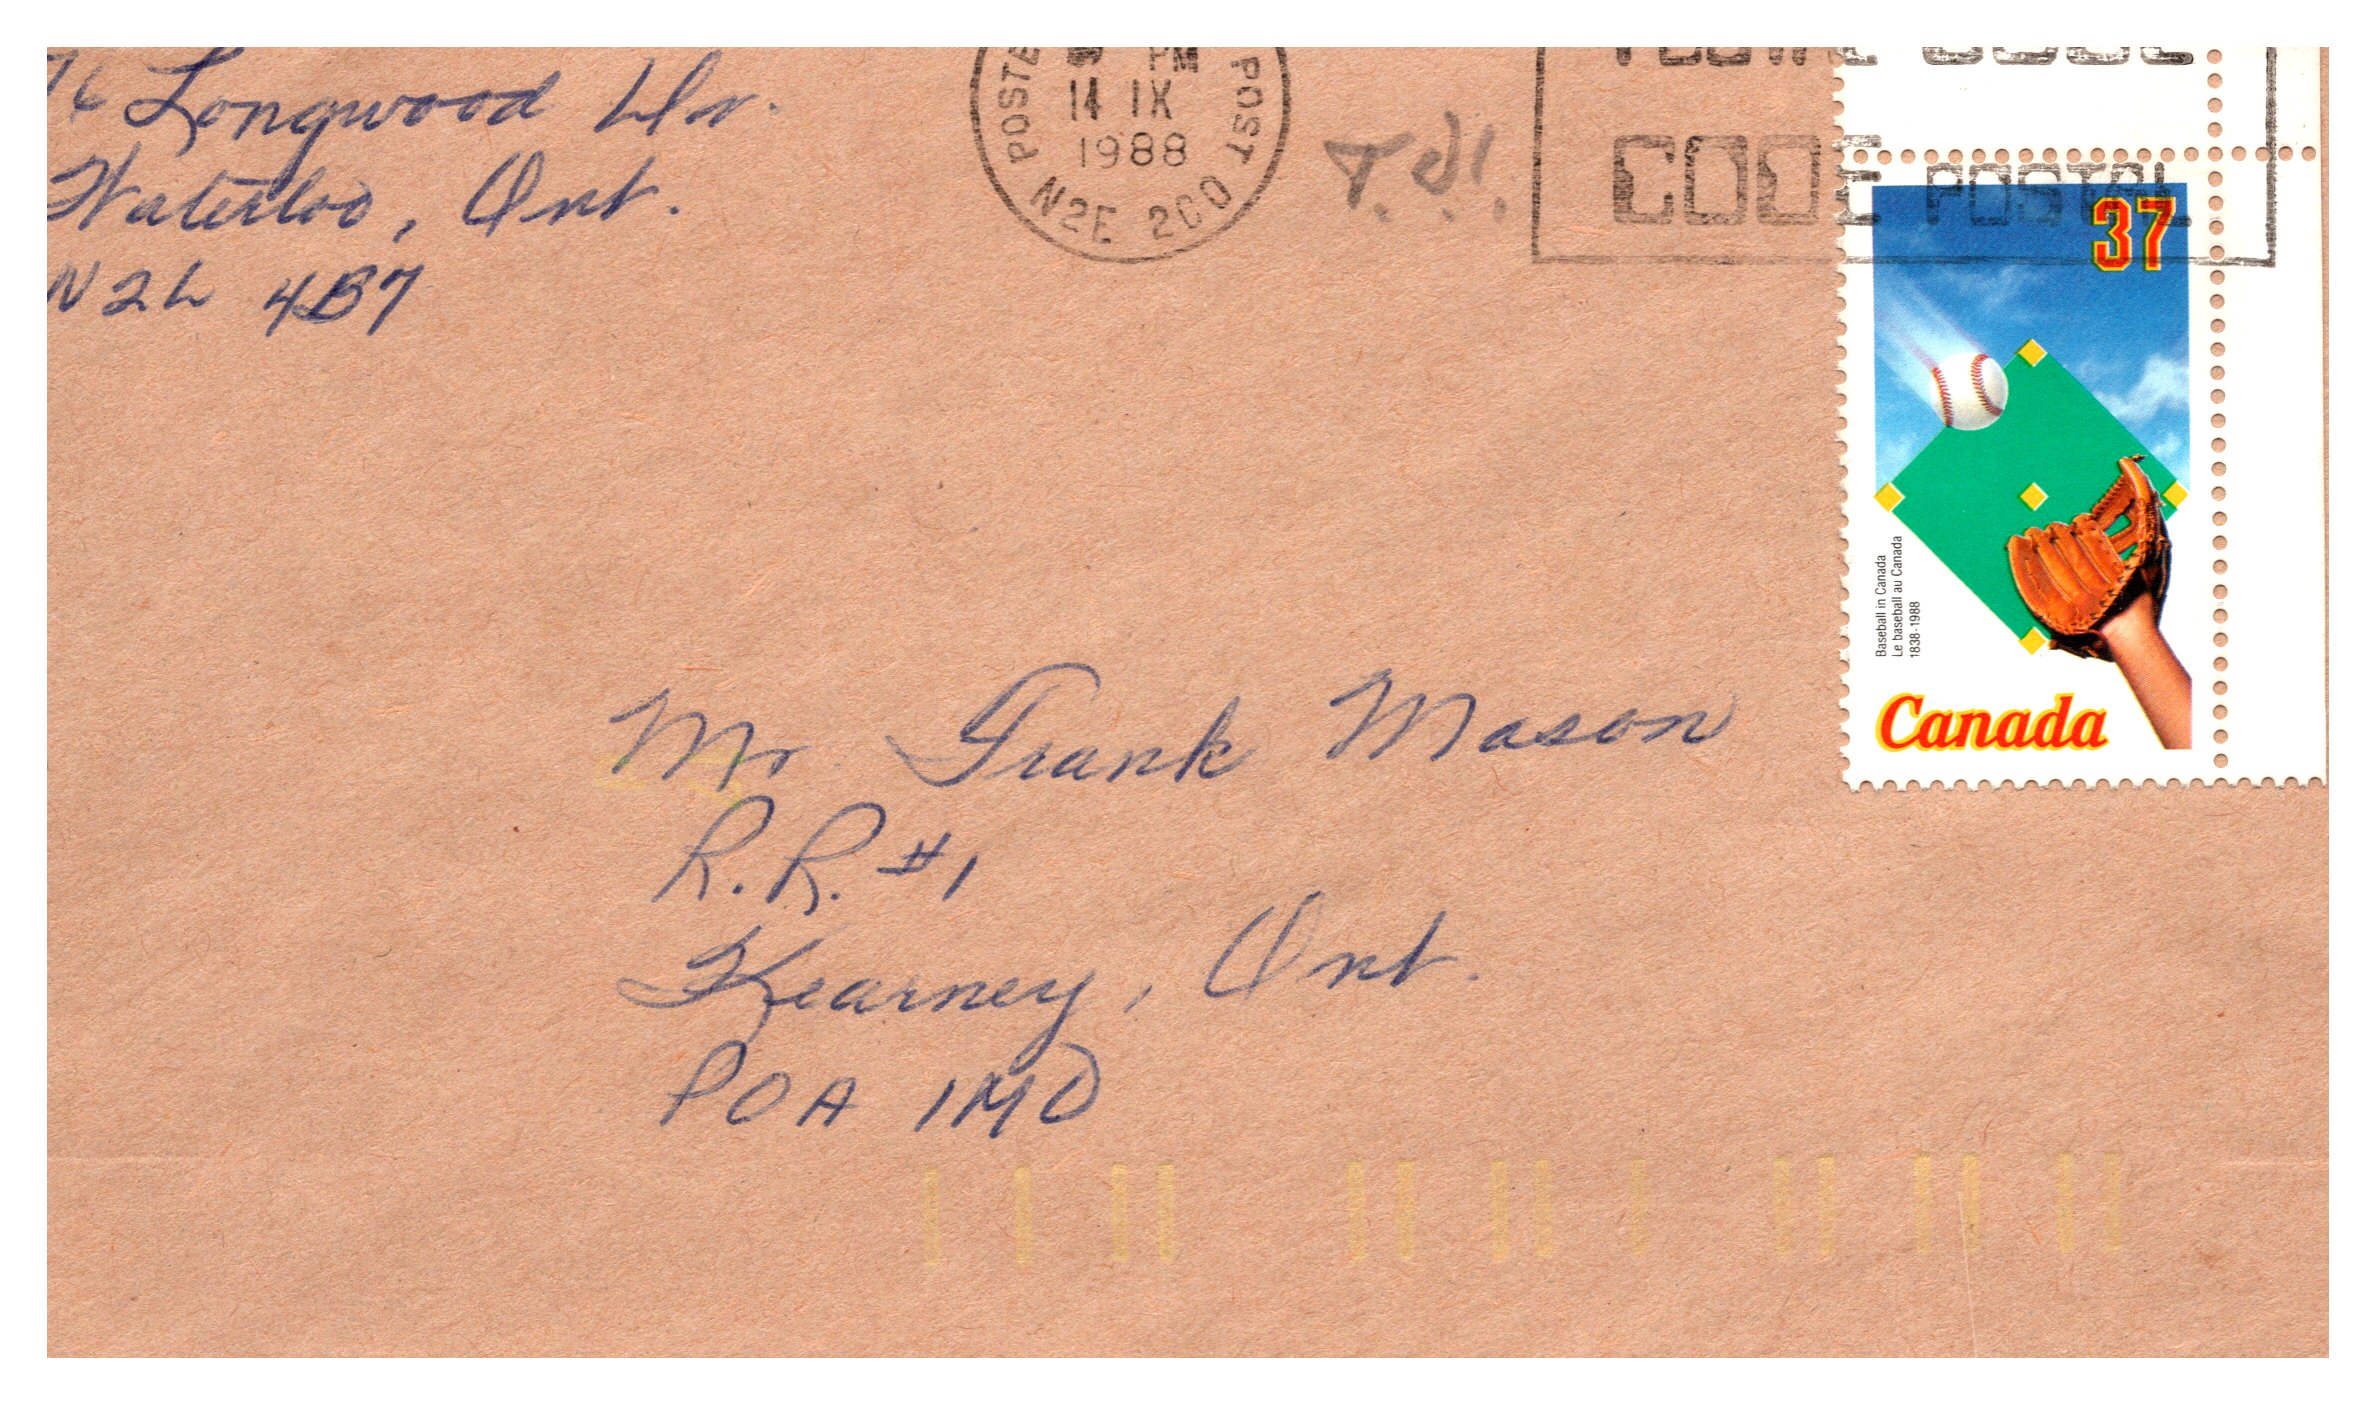 76 Longwood Dr.
Waterloo, Ont.
N2L 4B7
POSTE
PM
14 IX
1988
POST
N2E 2C0
T.O!.
CODE
CODE POSTAL
37
Baseball in Canada
Le baseball au Canada
1838-1988
Canada
Mr Frank Mason
R.R. #1
Kearney, Ont.
P0A 1M0